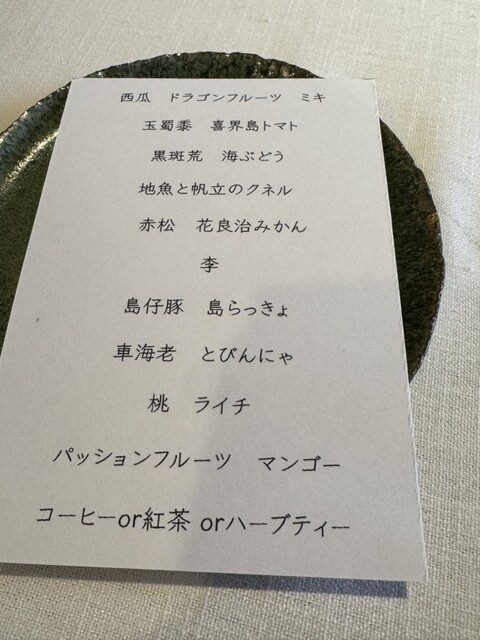 西瓜　ドラゴンフルーツ　ミキ
玉蜀黍　喜界島トマト
黒斑荒　海ぶどう
地魚と帆立のクネル
赤松　花良治みかん
李
島仔豚　島らっきょ
車海老　とびんにゃ
桃　ライチ
パッションフルーツ　マンゴー
コーヒーor紅茶 orハーブティー